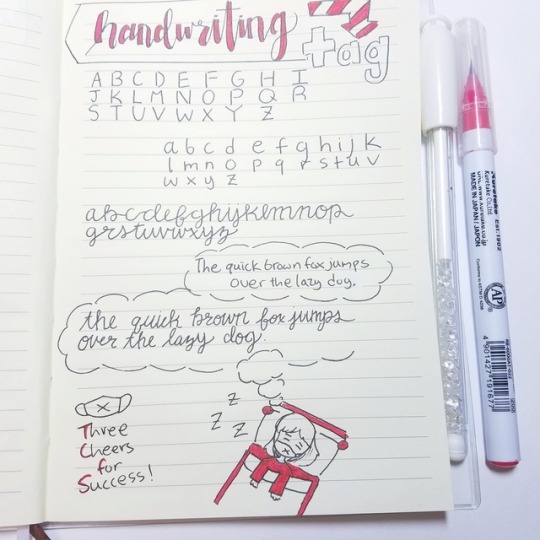 handwriting
tag
A B C D E F G H I
J K L M N O P Q R
S T U V W X Y Z
a b c d e f g h i j k
l m n o p q r s t u v
w x y z
abcdefghijklmnop
qrstuvwxyz
The quick brown fox jumps
over the lazy dog.
the quick brown fox jumps
over the lazy dog.
z
z
z
Three
Cheers
for
Success!
Kuretake Co.,Ltd.
Est. 1902
www.kuretake.co.jp
MADE IN JAPAN / JAPON
AP
4901427191677